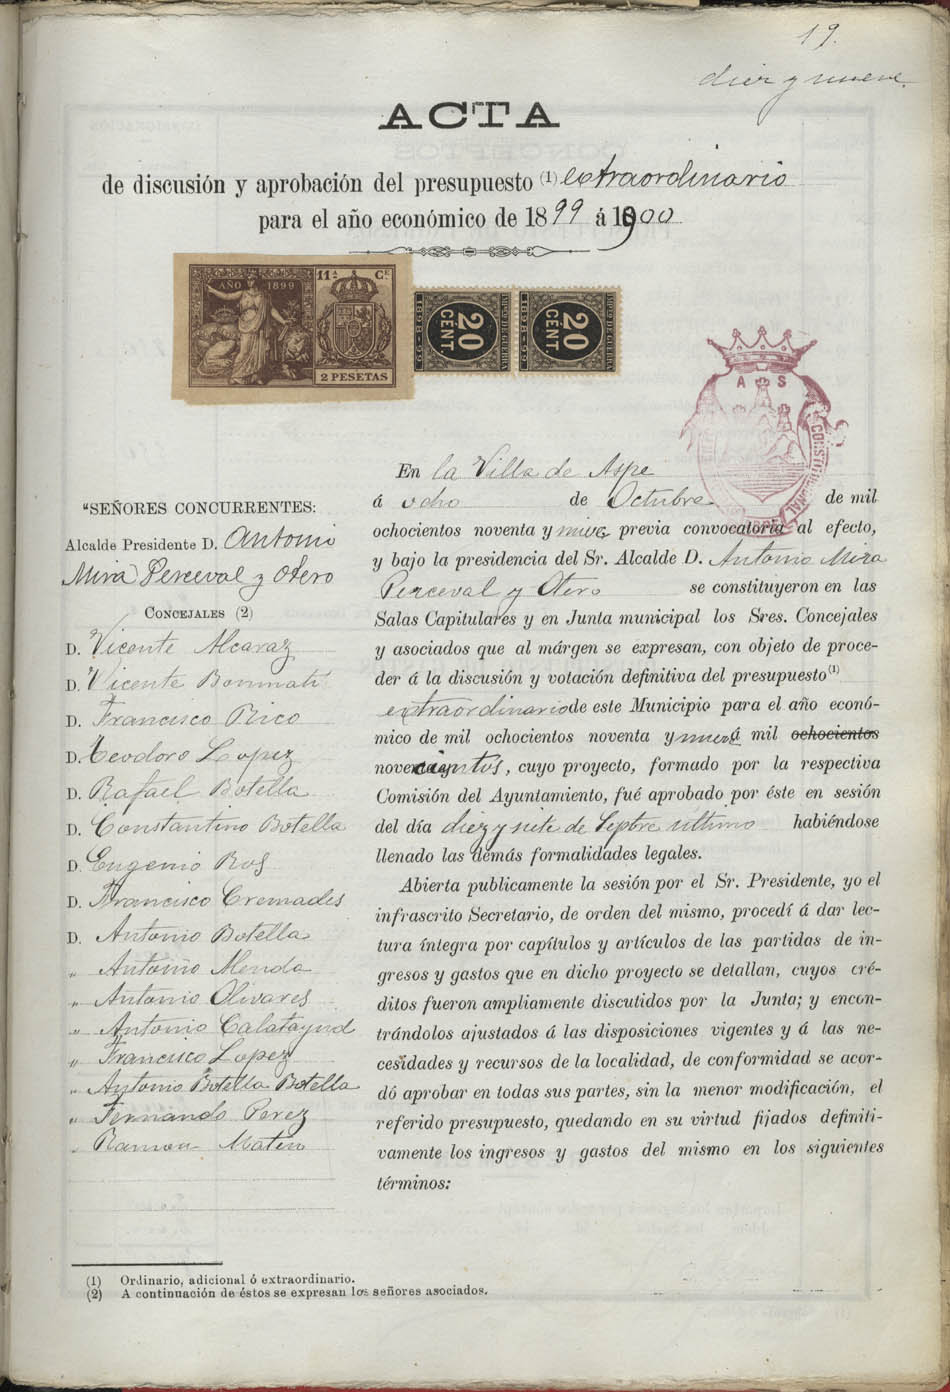 19.
diez y nueve.
ACTA
de discusión y aprobación del presupuesto (1) extraordinario
para el año económico de 1899 á 1900
AÑO 1899
11ª Cᴱ
2 PESETAS
20 CÉNT.
IMPTO DE GUERRA
1898-99
20 CÉNT.
IMPTO DE GUERRA
1898-99
A S
CONSTITUCIONAL
"SEÑORES CONCURRENTES:
Alcalde Presidente D. Antonio
Mira Perceval y Otero
CONCEJALES (2)
D. Vicente Alcaraz
D. Vicente Bonmati
D. Francisco Rico
D. Teodoro Lopez
D. Rafael Botella
D. Constantino Botella
D. Eugenio Ros
D. Francisco Cremades
D. Antonio Botella
" Antonio Menda
" Antonio Olivares
" Antonio Calatayud
" Francisco Lopez
" Antonio Botella Botella
" Fernando Perez
" Ramon Mateo
En la Villa de Aspe
á ocho de Octubre de mil
ochocientos noventa y nueve previa convocatoria al efecto,
y bajo la presidencia del Sr. Alcalde D. Antonio Mira
Perceval y Otero se constituyeron en las
Salas Capitulares y en Junta municipal los Sres. Concejales
y asociados que al márgen se expresan, con objeto de proce-
der á la discusión y votación definitiva del presupuesto (1)
extraordinario de este Municipio para el año econó-
mico de mil ochocientos noventa y nueve á mil ochocientos
novecientos, cuyo proyecto, formado por la respectiva
Comisión del Ayuntamiento, fué aprobado por éste en sesión
del día diez y siete de Septbre último habiéndose
llenado las demás formalidades legales.
Abierta publicamente la sesión por el Sr. Presidente, yo el
infrascrito Secretario, de orden del mismo, procedí á dar lec-
tura íntegra por capítulos y artículos de las partidas de in-
gresos y gastos que en dicho proyecto se detallan, cuyos cré-
ditos fueron ampliamente discutidos por la Junta; y encon-
trándolos ajustados á las disposiciones vigentes y á las ne-
cesidades y recursos de la localidad, de conformidad se acor-
dó aprobar en todas sus partes, sin la menor modificación, el
referido presupuesto, quedando en su virtud fijados definiti-
vamente los ingresos y gastos del mismo en los siguientes
términos:
(1) Ordinario, adicional ó extraordinario.
(2) A continuación de éstos se expresan los señores asociados.